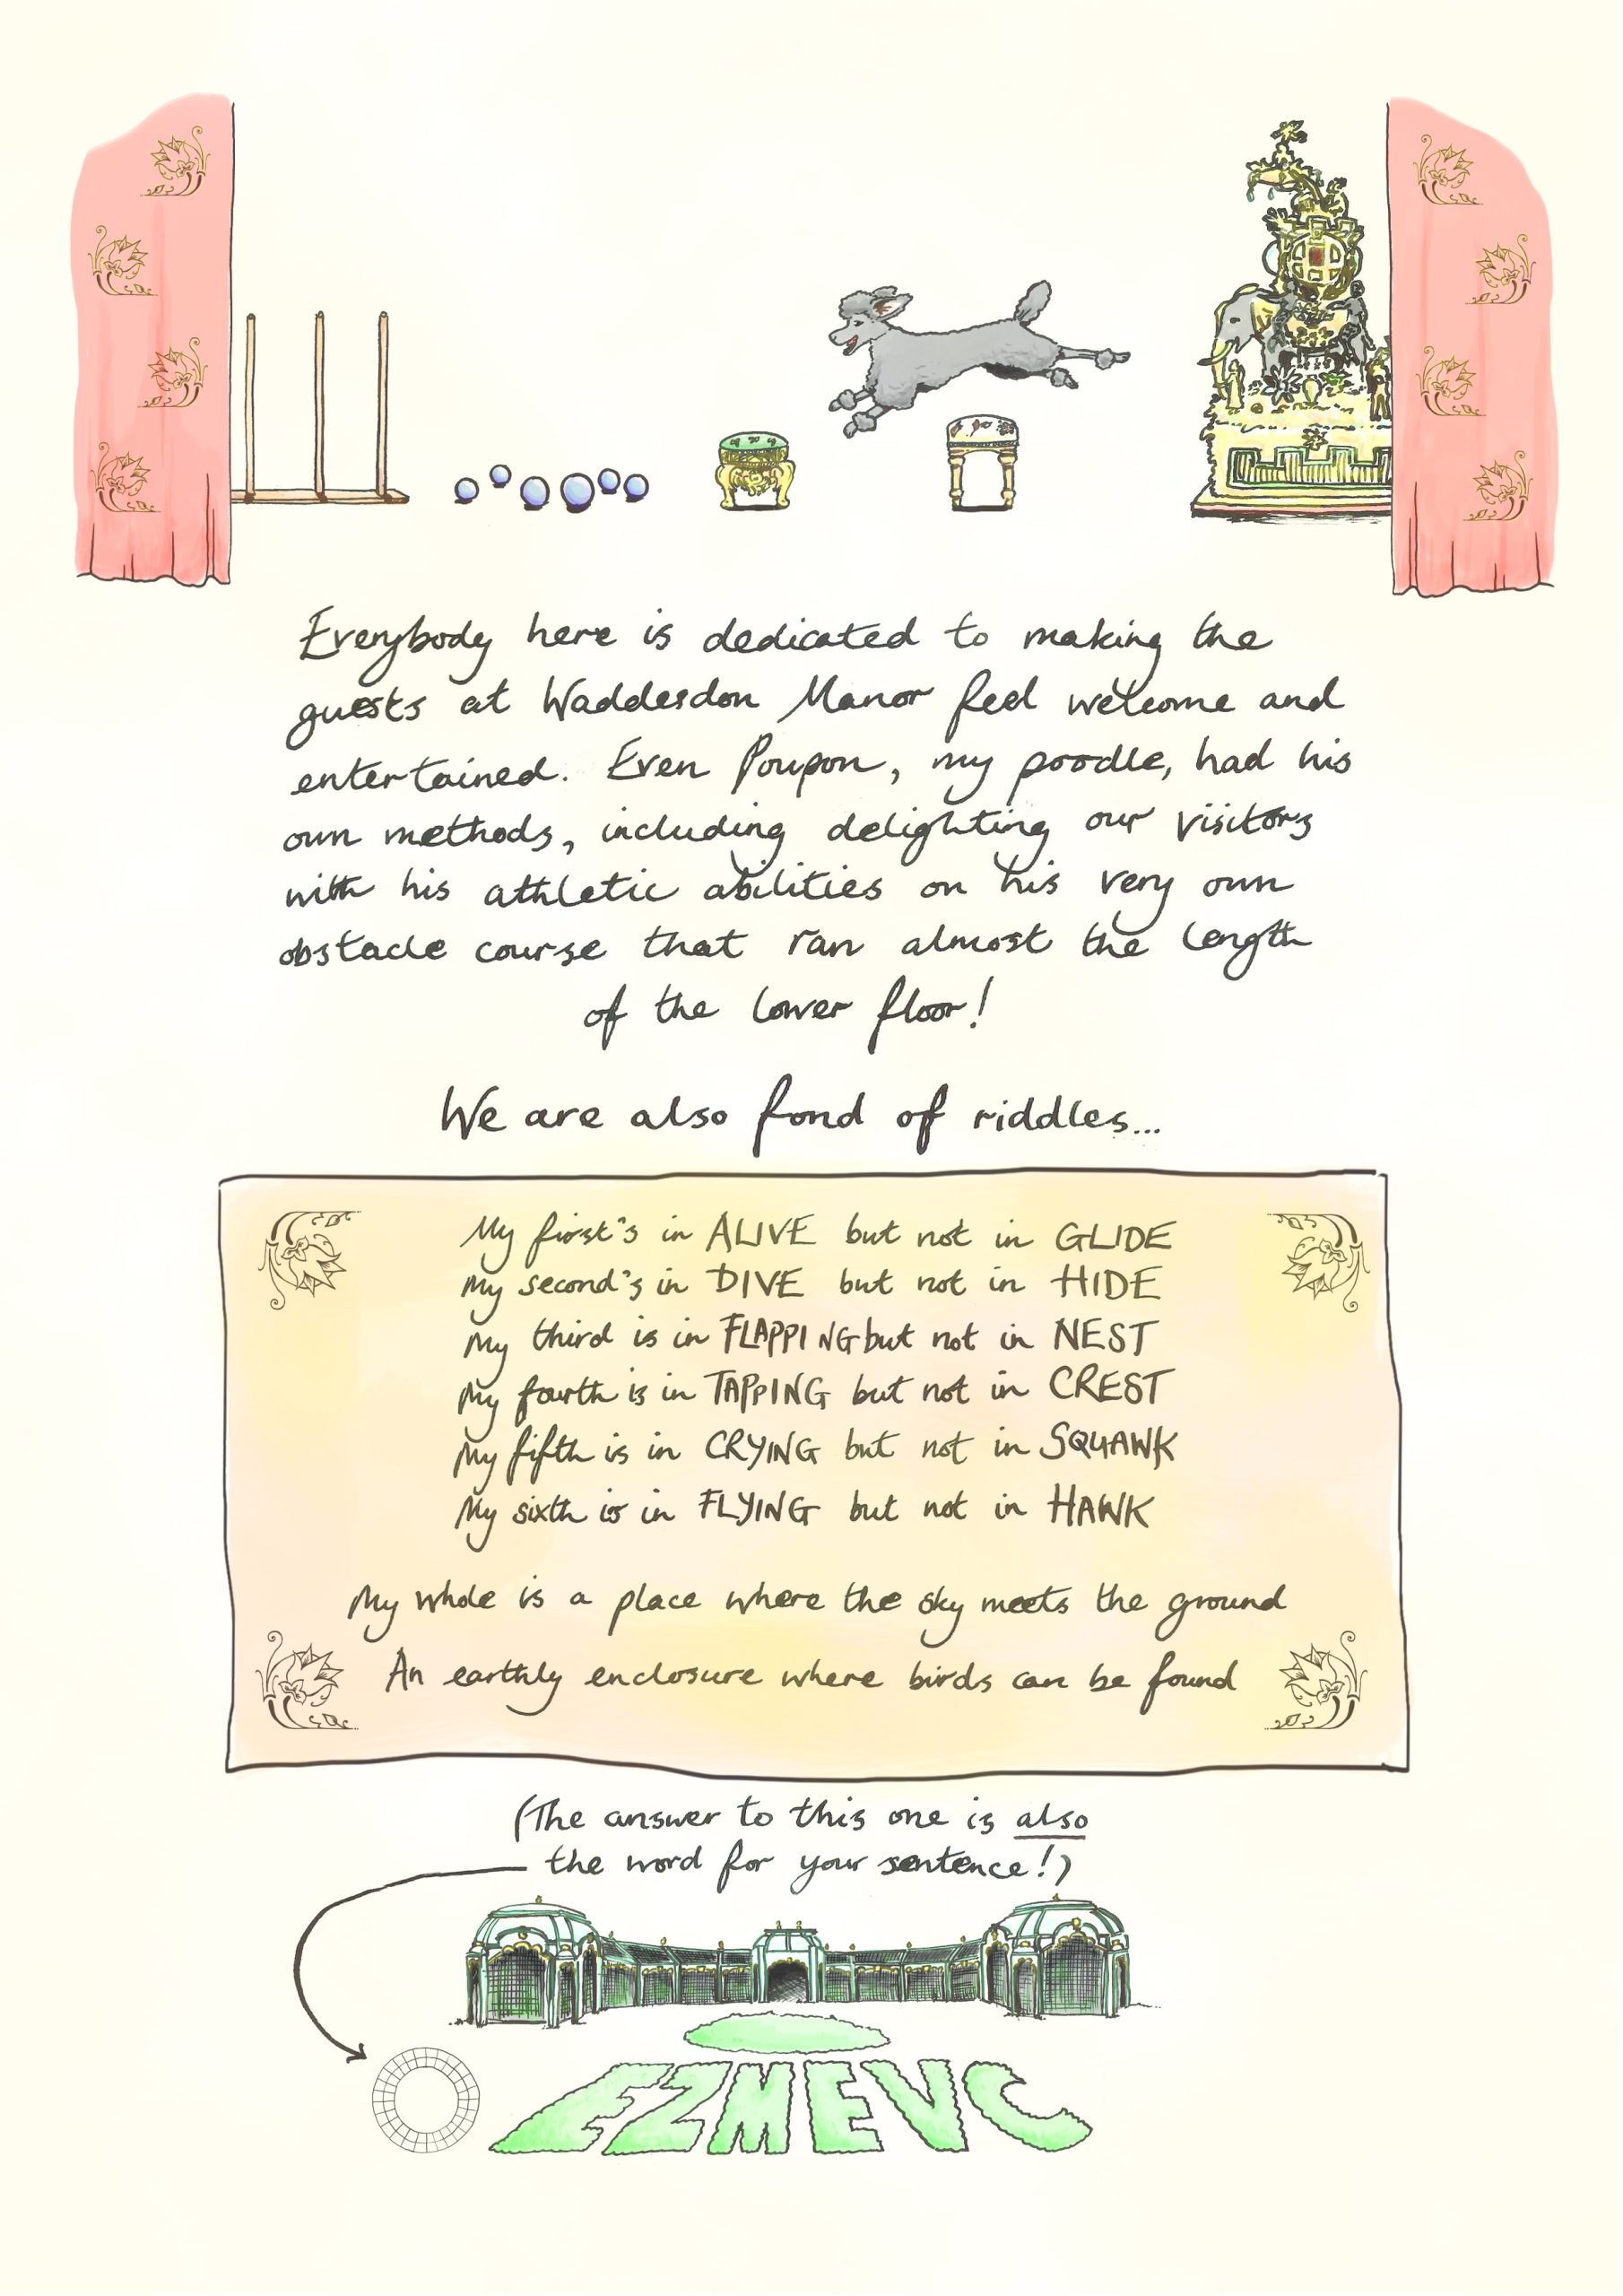 Everybody here is dedicated to making the
guests at Waddesdon Manor feel welcome and
entertained. Even Poupon, my poodle, had his
own methods, including delighting our visitors
with his athletic abilities on his very own
obstacle course that ran almost the length
of the lower floor!
We are also fond of riddles...
My first's in ALIVE but not in GLIDE
My second's in DIVE but not in HIDE
My third is in FLAPPING but not in NEST
My fourth is in TAPPING but not in CREST
My fifth is in CRYING but not in SQUAWK
My sixth is in FLYING but not in HAWK
My whole is a place where the sky meets the ground
An earthly enclosure where birds can be found
(The answer to this one is also
the word for your sentence!)
EZMEVC